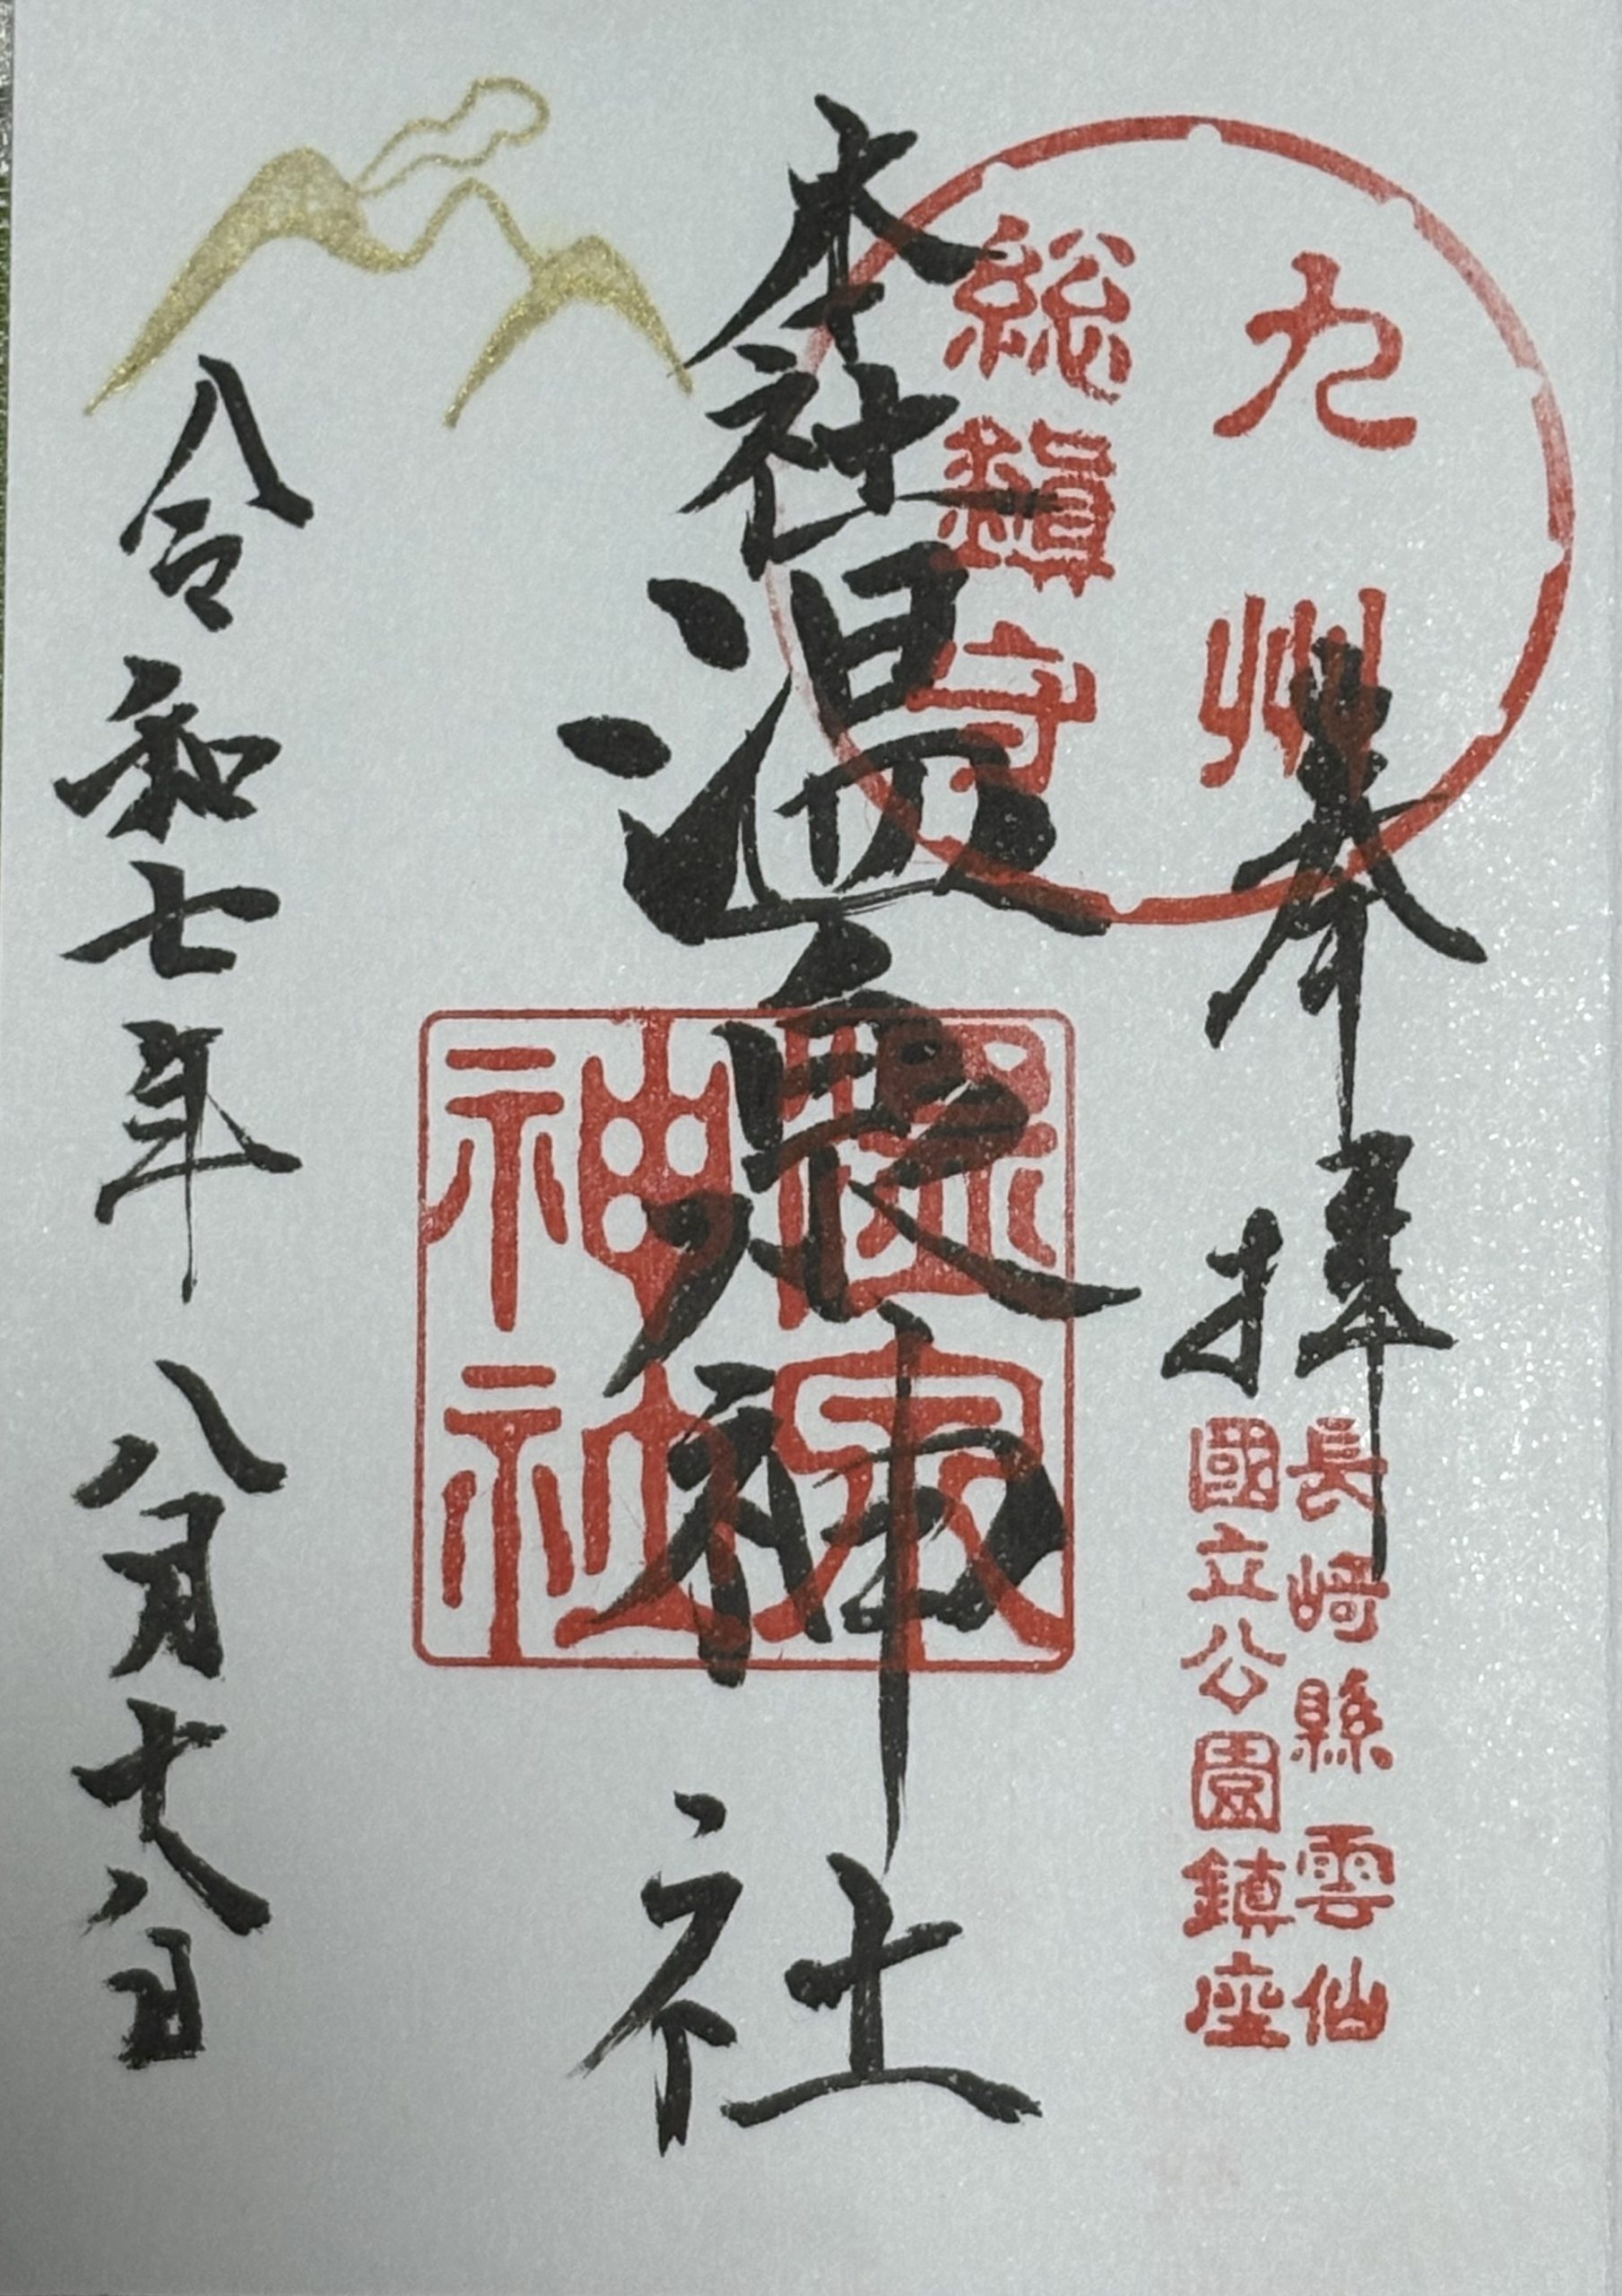 九州
総鎮守
奉拝
長崎縣雲仙
國立公園鎮座
本社
温泉神社
神社
令和七年八月十八日